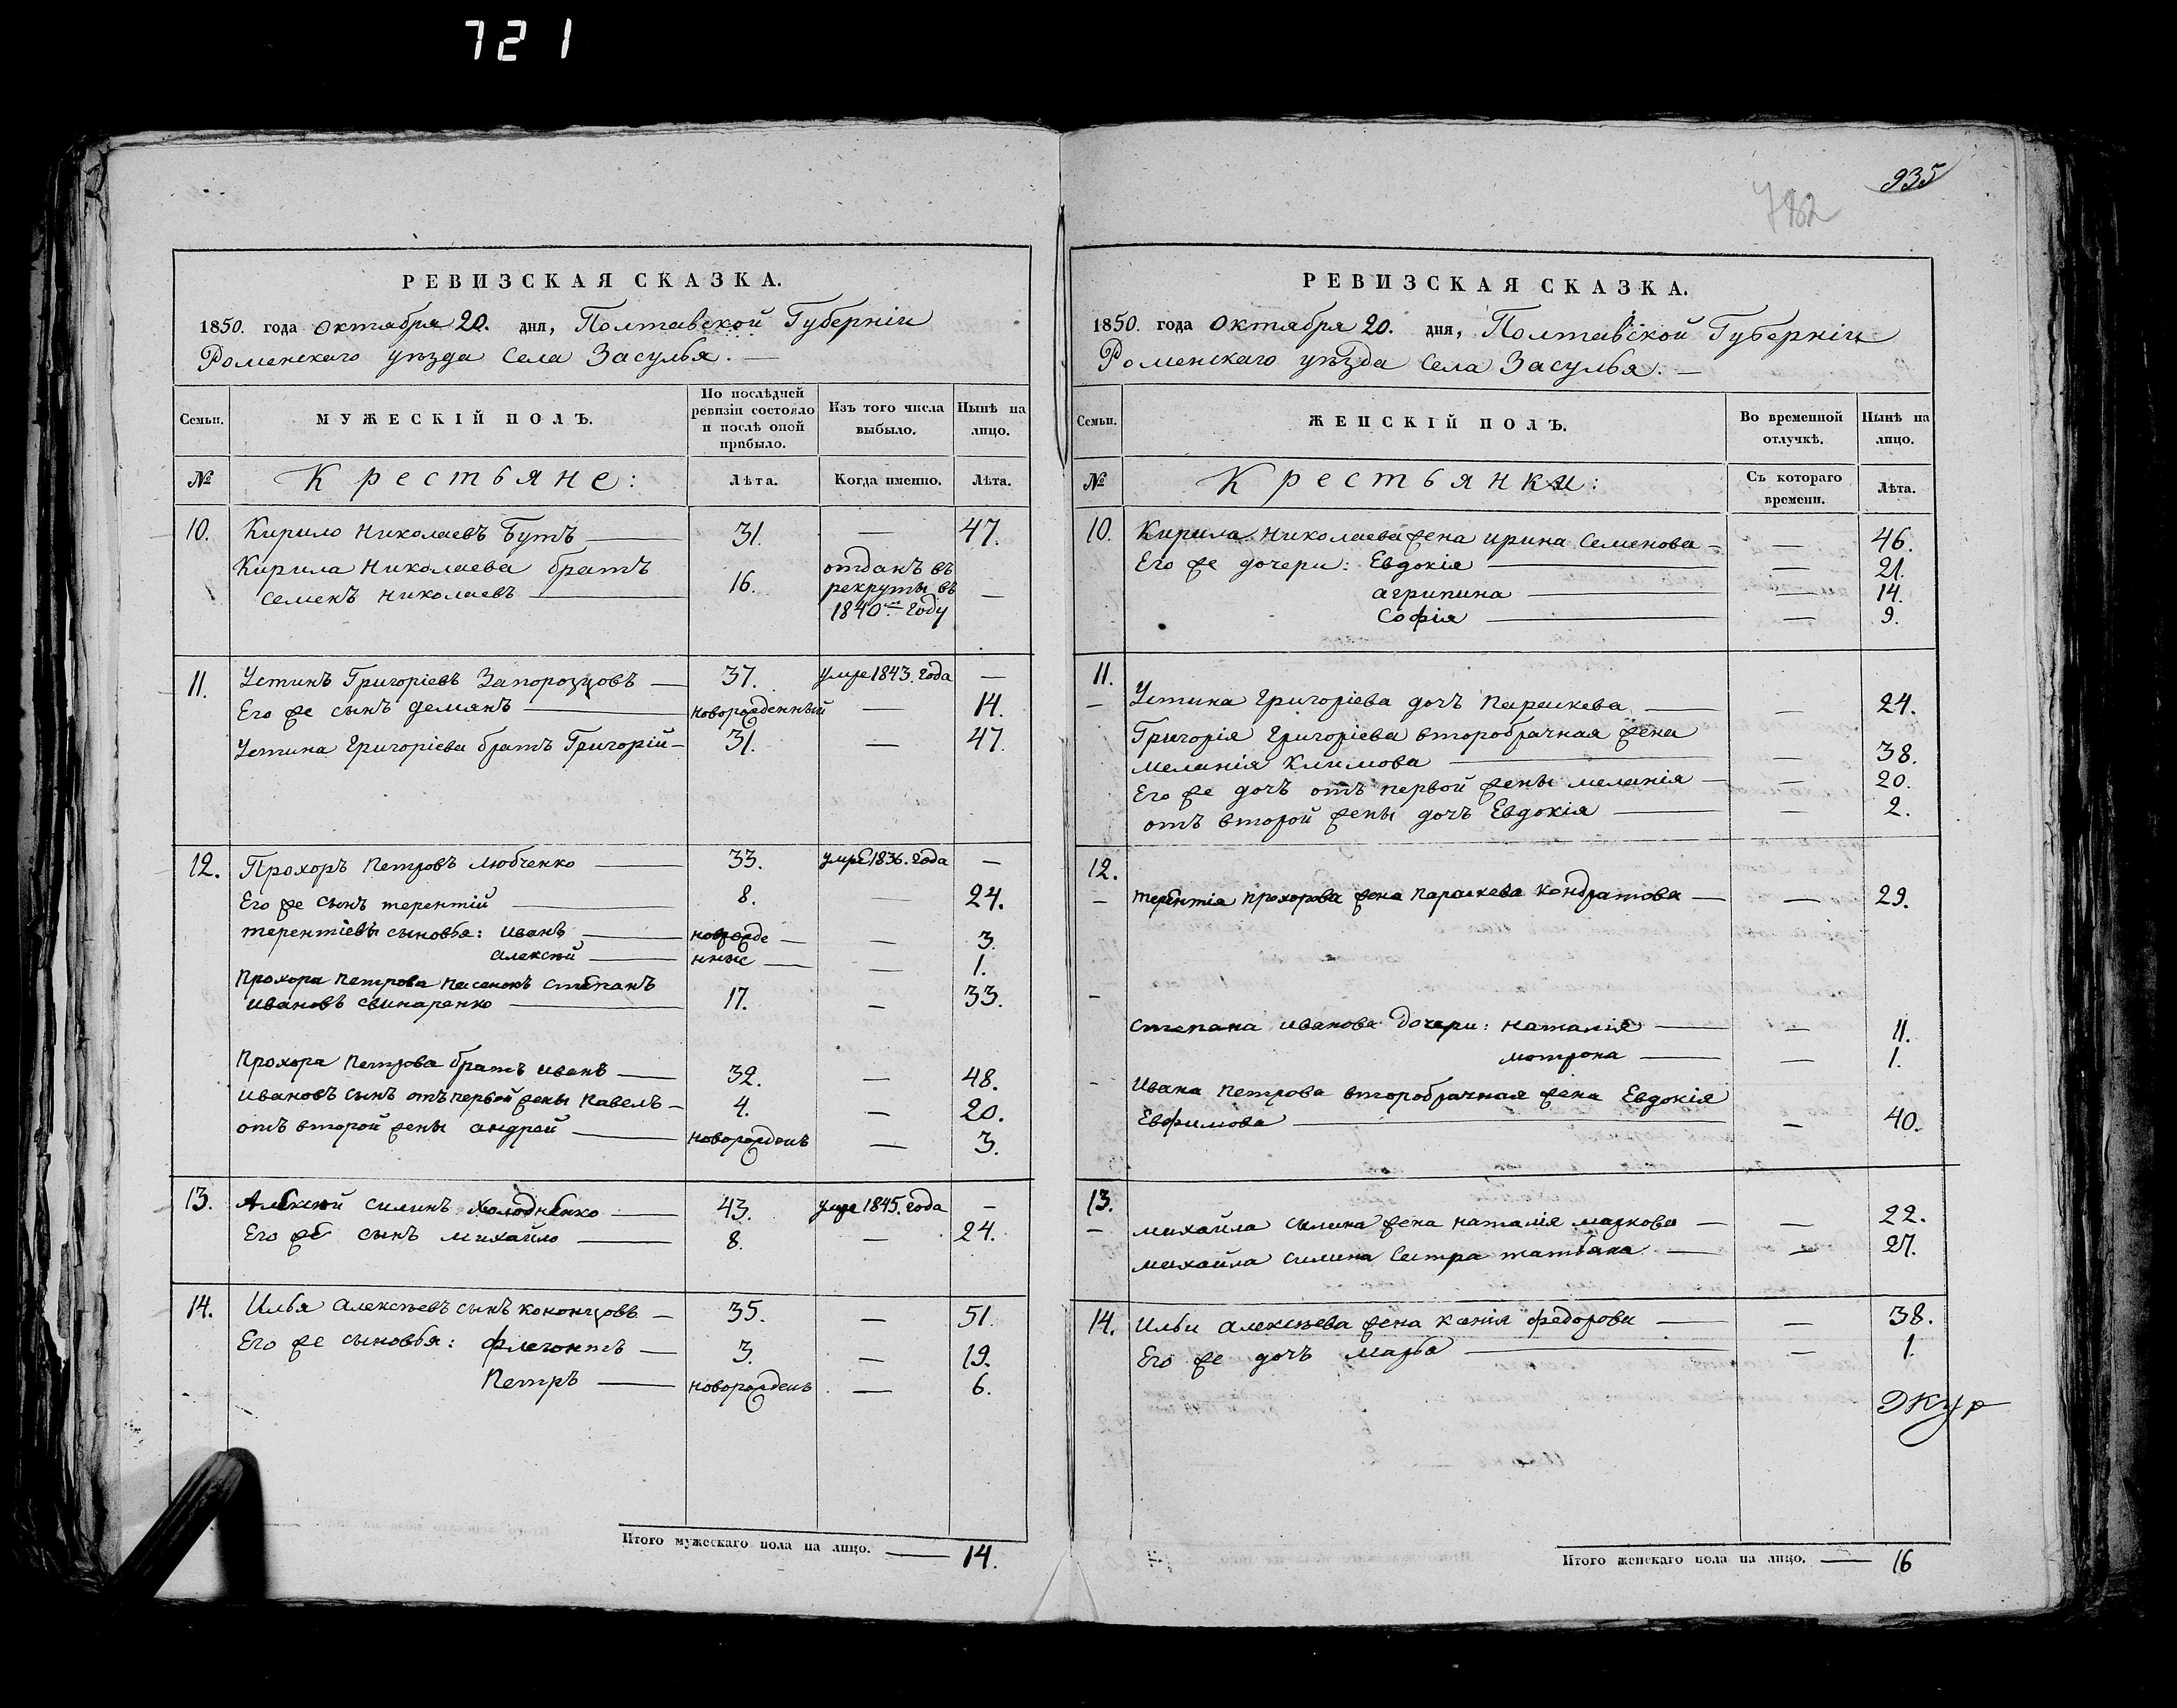 721
935
782
РЕВИЗСКАЯ СКАЗКА.
1850. года Октября 20. дня, Полтавской Губерніи
Роменскаго уѣзда Села Засулья. —
Семьи.
МУЖЕСКІЙ ПОЛЪ.
По послѣдней ревизіи состояло и послѣ оной прибыло.
Изъ того числа выбыло.
Нынѣ на лицо.
№
Крестьяне:
Лѣта.
Когда именно.
Лѣта.
10. Кирило Николаевъ Бутъ — 31. — 47.
Кирила Николаева братъ
Семенъ Николаевъ — 16. отданъ въ рекруты въ 1840мъ году —
11. Устинъ Григоріевъ Запорозцовъ — 37. умре 1843. года —
Его же сынъ Демянъ — новорожденный — 14.
Устина Григоріева братъ Григорій — 31. — 47.
12. Прохоръ Петровъ Любченко — 33. умре 1836. года —
Его же сынъ Терентій — 8. — 24.
Терентіевы сыновья: Иванъ — новорожде — — 3.
Алексѣй — нные — — 1.
Прохора Петрова пасенокъ Степанъ
Ивановъ Свинаренко — 17. — 33.
Прохора Петрова братъ Иванъ — 32. — 48.
Ивановъ сынъ отъ первой жены Павелъ — 4. — 20.
отъ второй жены Андрей — новорожденъ — 3.
13. Алексѣй Силинъ Холодненко — 43. умре 1845. года —
Его же сынъ Михайло — 8. — 24.
14. Илья Алексѣевъ сынъ Кононцовъ — 35. — 51.
Его же сыновья: Флегонтъ — 3. — 19.
Петръ — новорожденъ — 6.
Итого мужескаго пола на лицо. — 14.
РЕВИЗСКАЯ СКАЗКА.
1850. года Октября 20. дня, Полтавской Губерніи
Роменскаго уѣзда Села Засулья. —
Семьи.
ЖЕНСКІЙ ПОЛЪ.
Во временной отлучкѣ.
Нынѣ на лицо.
№
Крестьянки:
Съ котораго времени.
Лѣта.
10. Кирила Николаева жена Ирина Семенова — — 46.
Его же дочери: Евдокія — — 21.
Агрипина — — 14.
Софія — — 9.
11.
— Устина Григоріева дочъ Параскева — — 24.
Григорія Григоріева второбрачная жена
Меланія Климова — — 38.
Его же дочъ отъ первой жены Меланія — — 20.
отъ второй жены дочъ Евдокія — — 2.
12.
— Терентія Прохорова жена Параскева Кондратова — — 29.
—
Степана Иванова дочери: Наталія — — 11.
Мотрона — — 1.
— Ивана Петрова второбрачная жена Евдокія
Евфимова — — 40.
13.
— Михайла Силина жена Наталія Маркова — — 22.
Михайла Силина сестра Татіана — — 27.
14. Ильи Алексѣева жена Ксенія Федорова — — 38.
Его же дочъ Марѳа — — 1.
Итого женскаго пола на лицо. — 16